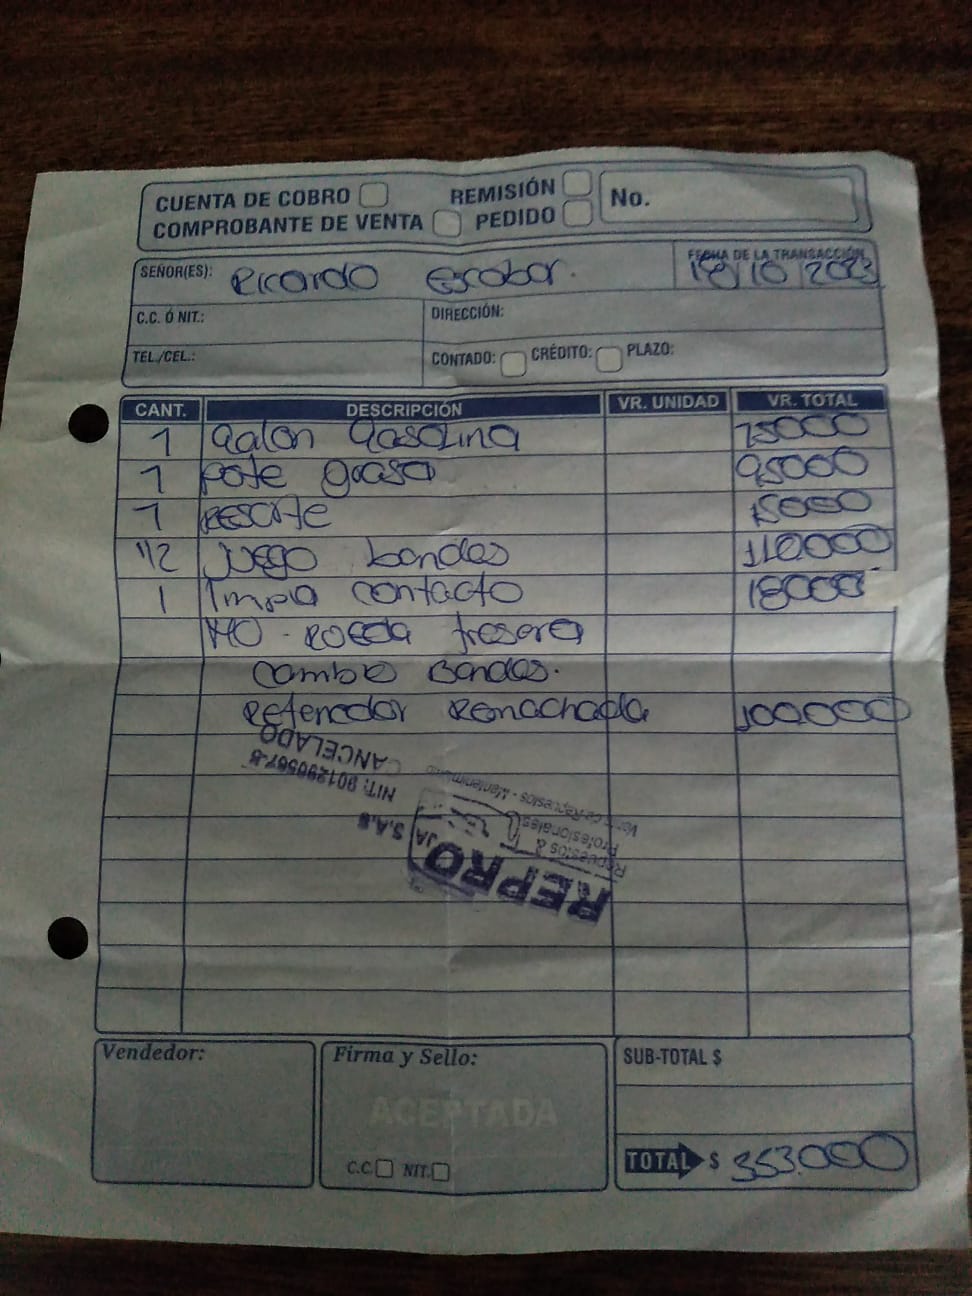 CUENTA DE COBRO
REMISIÓN
No.
COMPROBANTE DE VENTA
PEDIDO
SEÑOR(ES): Ricardo Escobar.
FECHA DE LA TRANSACCIÓN
18/10/2023
C.C. Ó NIT.:
DIRECCIÓN:
TEL./CEL.:
CONTADO: CRÉDITO: PLAZO:
CANT. DESCRIPCIÓN VR. UNIDAD VR. TOTAL
1 galon gasolina 15000
1 pote grasa 95000
1 resorte 15000
1/2 juego bandas 110000
1 limpia contacto 18000
MO - rueda trasera
cambio Bandas.
retenedor Remachada 100.000
CANCELADO
NIT: 901290567-5
S.A.S
Venta de Repuestos - Mantenimiento
Profesionales
Repuestos &
REPRO
Vendedor:
Firma y Sello:
ACEPTADA
C.C. NIT.
SUB-TOTAL $
TOTAL $ 353.000